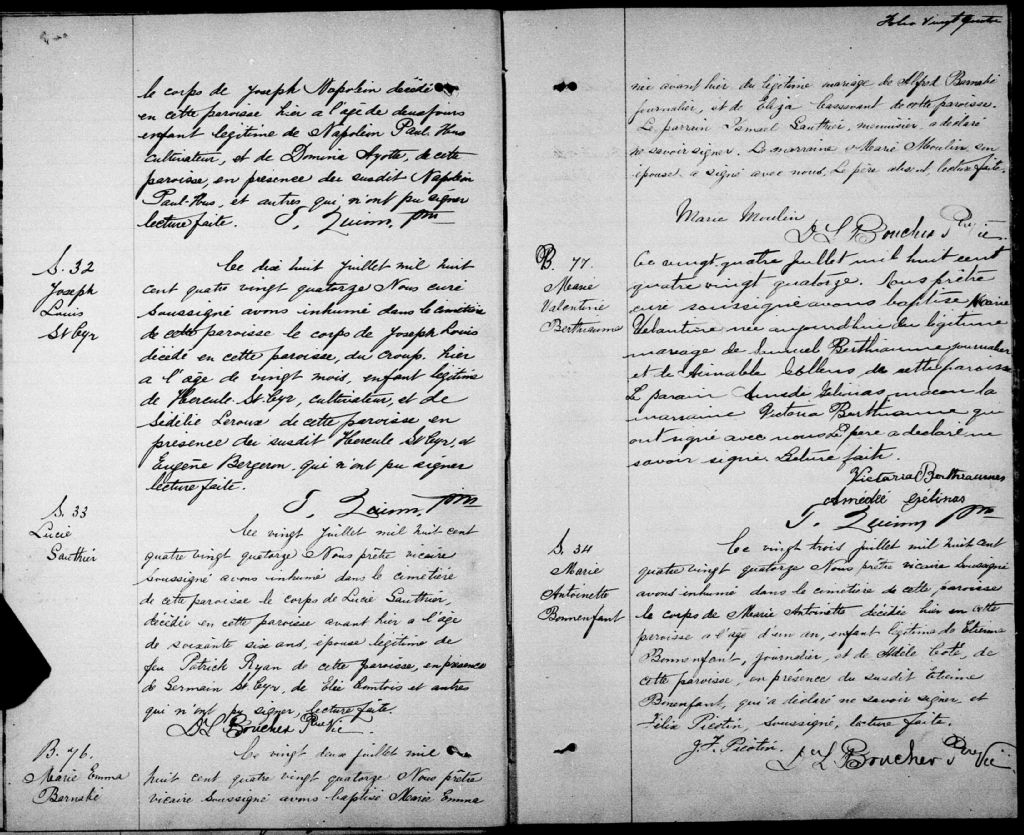 le corps de Joseph Napoléon décédé
en cette paroisse hier à l'âge de deux jours
enfant légitime de Napoléon Paul-Hus
cultivateur, et de Domina Ayotte, de cette
paroisse, en présence du susdit Napoléon
Paul-Hus, et autres qui n'ont pu signer
lecture faite. T. Quinn, Ptre
S. 32
Joseph
Louis
St Cyr
Ce dix huit juillet mil huit
cent quatre vingt quatorze Nous curé
soussigné avons inhumé dans le cimetière
de cette paroisse le corps de Joseph Louis
décédé en cette paroisse, du croup, hier
a l'âge de vingt mois, enfant légitime
de Hercule St Cyr, cultivateur, et de
Sédélie Leroux de cette paroisse en
présence du susdit Hercule St Cyr, et
Eugène Bergeron qui n'ont pu signer
lecture faite.
T. Quinn, Ptre
S. 33
Lucie
Gauthier
Ce vingt juillet mil huit cent
quatre vingt quatorze Nous prêtre vicaire
soussigné avons inhumé dans le cimetière
de cette paroisse le corps de Lucie Gauthier,
décédée en cette paroisse avant hier a l'âge
de soixante six ans, épouse légitime de
feu Patrick Ryan de cette paroisse, en présence
de Germain St Cyr, de Elie Comtois et autres
qui n'ont pu signer, lecture faite.
D. L. Boucher Ptre Vic.
B. 76.
Marie Emma
Barnabé
Ce vingt deux juillet mil
huit cent quatre vingt quatorze Nous prêtre
vicaire soussigné avons baptisé Marie Emma
Folio Vingt quatre
née avant hier du légitime mariage de Alfred Barnabé
journalier, et de Eliza de cette paroisse.
Le parrain Ismael Gauthier, meunier, a déclaré
ne savoir signer. La marraine Marie Moulin, son
épouse a signé avec nous. Le père absent, lecture faite.
Marie Moulin
D L Boucher Ptre Vic
B. 77.
Marie
Valentine
Berthiaume
Ce vingt quatre juillet mil huit cent
quatre vingt quatorze. Nous prêtre
curé soussigné avons baptisé Marie
Valentine née aujourdhui du légitime
mariage de Samuel Berthiaume journalier
et de Aimable de cette paroisse
Le parain Amédé Gelinas, macon la
marraine Victoria Berthiaume qui
ont signé avec nous Le pere a declaré ne
savoir signé. Lecture faite.
Victoria Berthiaumes
Amédée Gélinas
T. Quinn, Ptre
S. 34
Marie
Antoinette
Bonnenfant
Ce vingt trois juillet mil huit cent
quatre vingt quatorze Nous prêtre vicaire soussigné
avons inhumé dans le cimetière de cette paroisse
le corps de Marie Antoinette décédée hier en cette
paroisse a l'âge d'un an, enfant légitime de Etienne
Bonnenfant, journalier, et de Adèle Coté, de
cette paroisse, en présence du susdit Etienne
Bonenfant, qui a déclaré ne savoir signer et
Félix Picotin soussigné, lecture faite.
J. F. Picotin. D L Boucher Ptre Vic